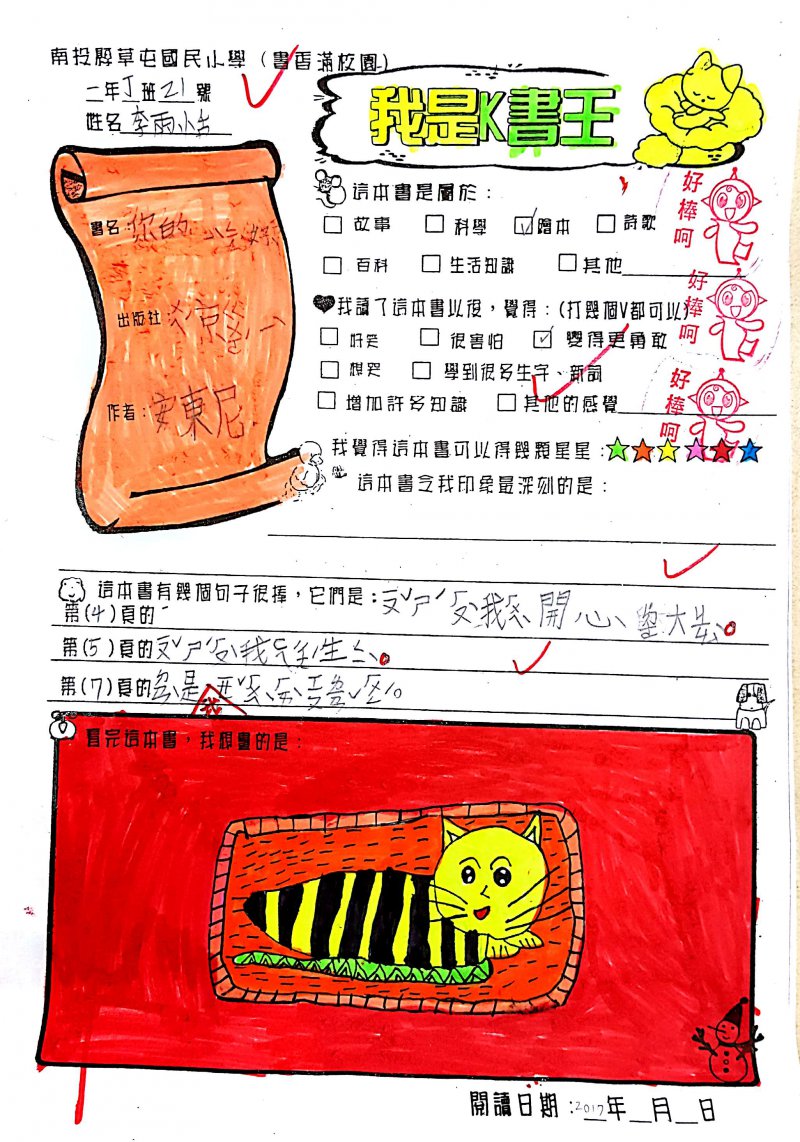 南投縣草屯國民小學（書香滿校園）
二年丁班21號
姓名李雨小
我是K書王
書名：您的
出版社：
作者：安東尼
這本書是屬於：
□故事 □科學 ☑繪本 □詩歌
□百科 □生活知識 □其他
好棒呵
我讀了這本書以後，覺得：(打幾個V都可以)
□好笑 □很害怕 ☑變得更勇敢
□想哭 □學到很多生字、新詞
□增加許多知識 □其他的感覺
好棒呵
好棒呵
我覺得這本書可以得幾顆星星：
這本書令我印象最深刻的是：
這本書有幾個句子很棒，它們是：
第(4)頁的 我 開心、 大
第(5)頁的 我 生
第(7)頁的 是
我
看完這本書，我想畫的是：
閱讀日期：2017年 月 日